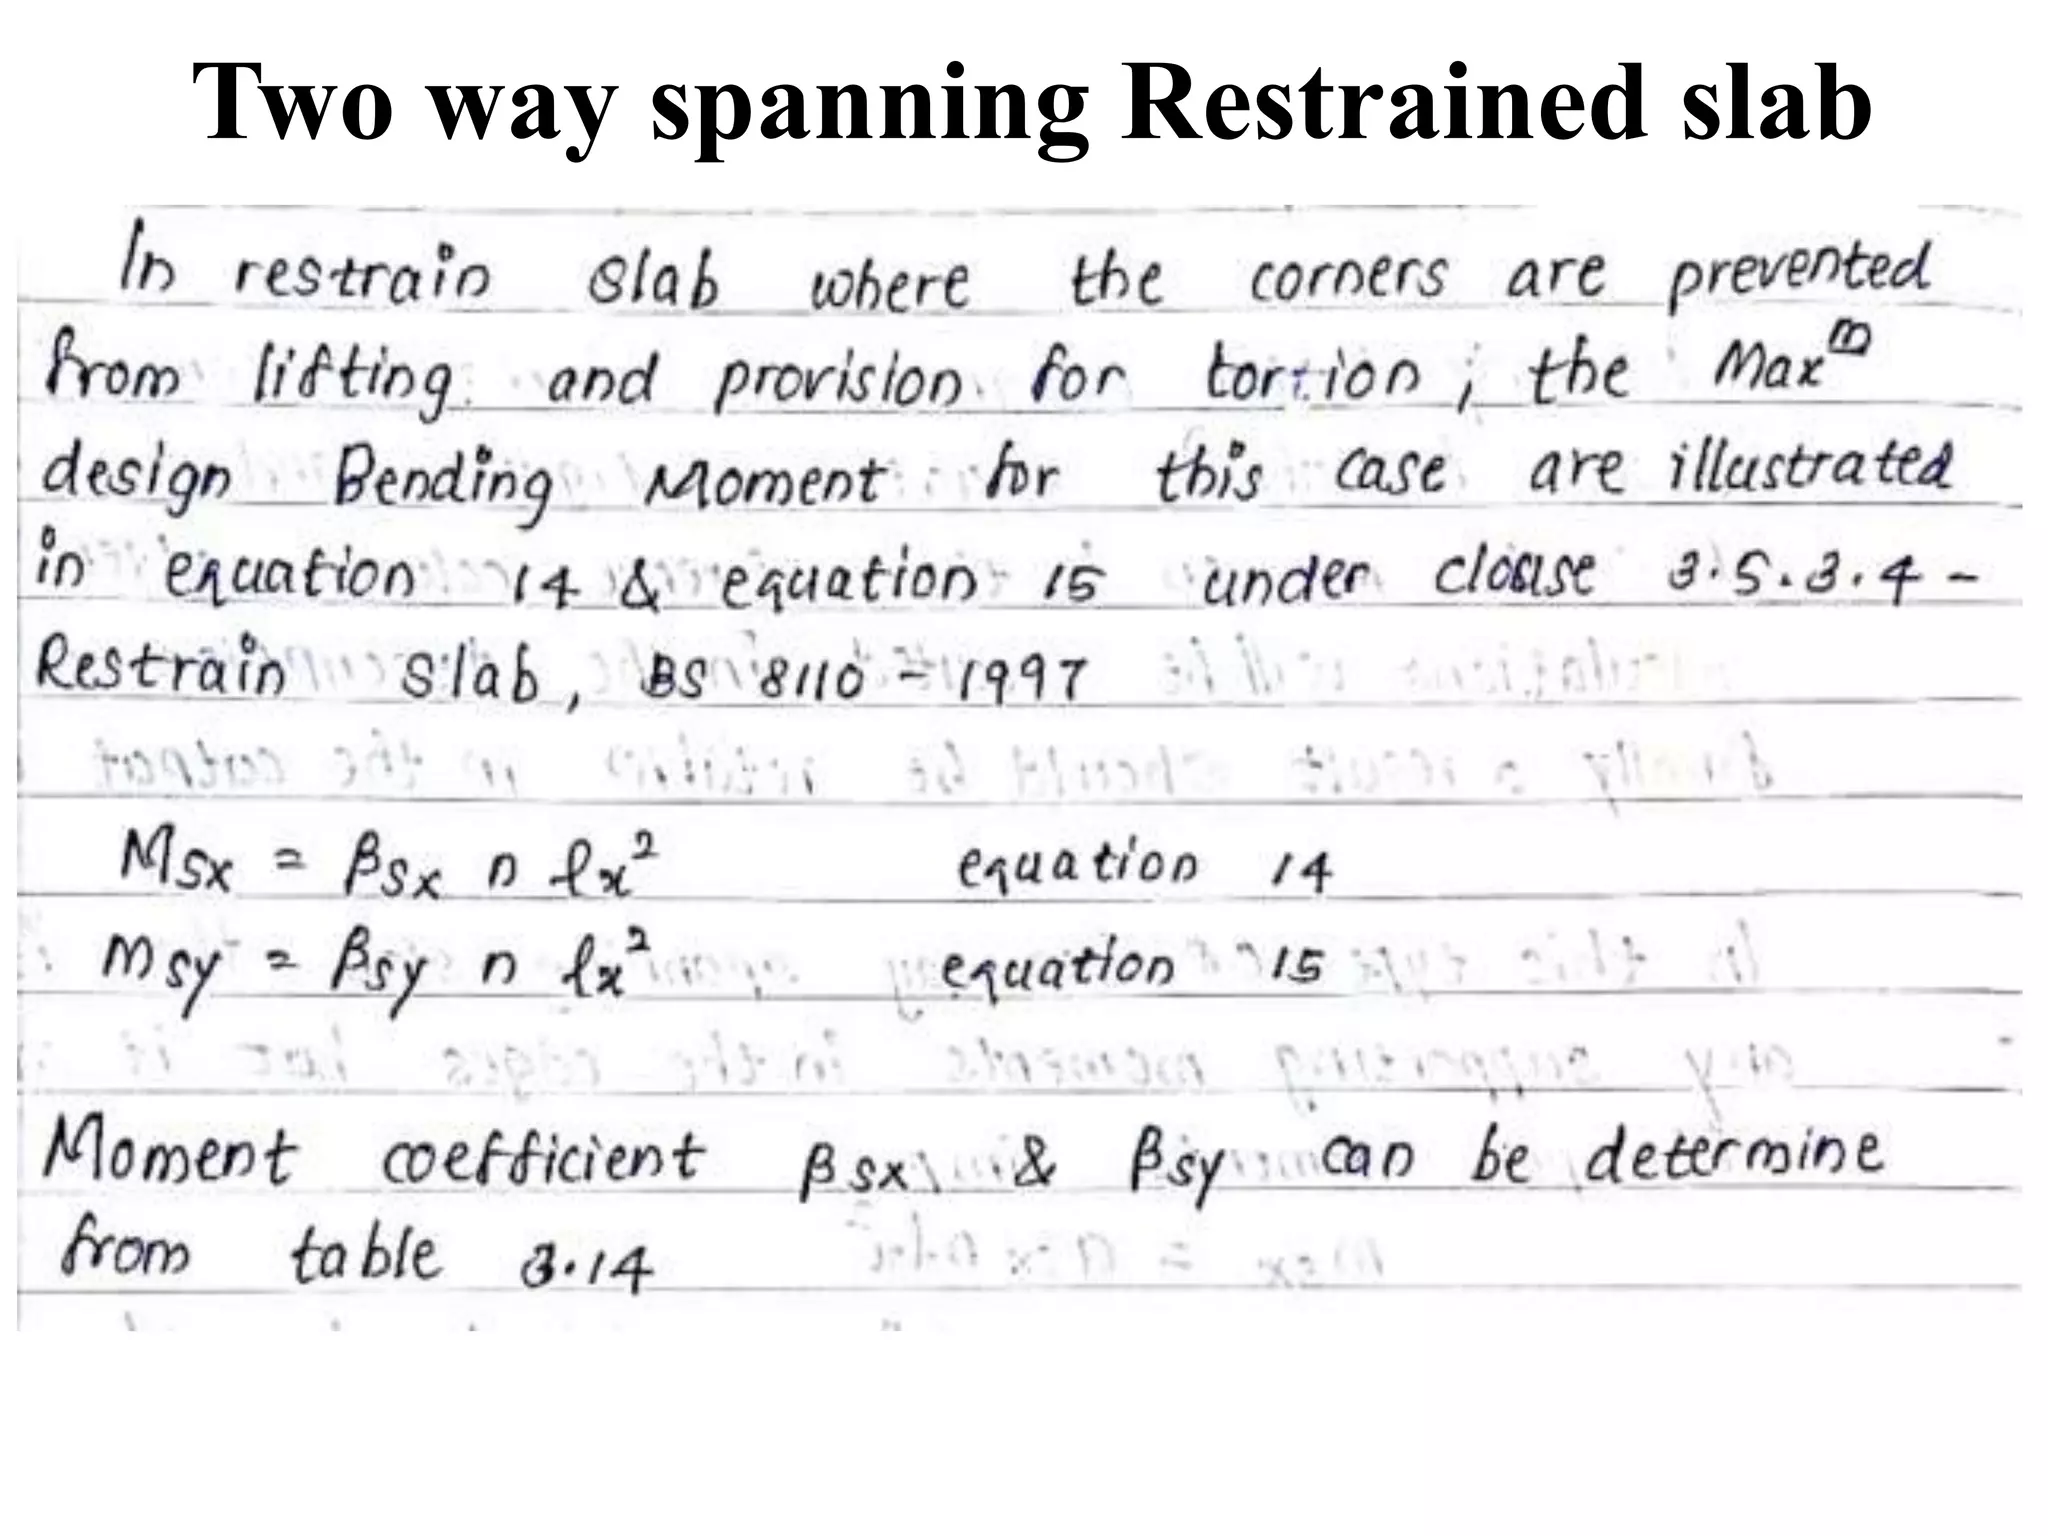 Two way spanning Restrained slab
In restrain slab where the corners are prevented
from lifting and provision for tortion, the Maxᵐ
design Bending Moment for this case are illustrated
in equation 14 & equation 15 under clouse 3.5.3.4 -
Restrain slab, BS 8110 - 1997
Msx = βsx n lx² equation 14
Msy = βsy n lx² equation 15
Moment coefficient βsx & βsy can be determine
from table 3.14